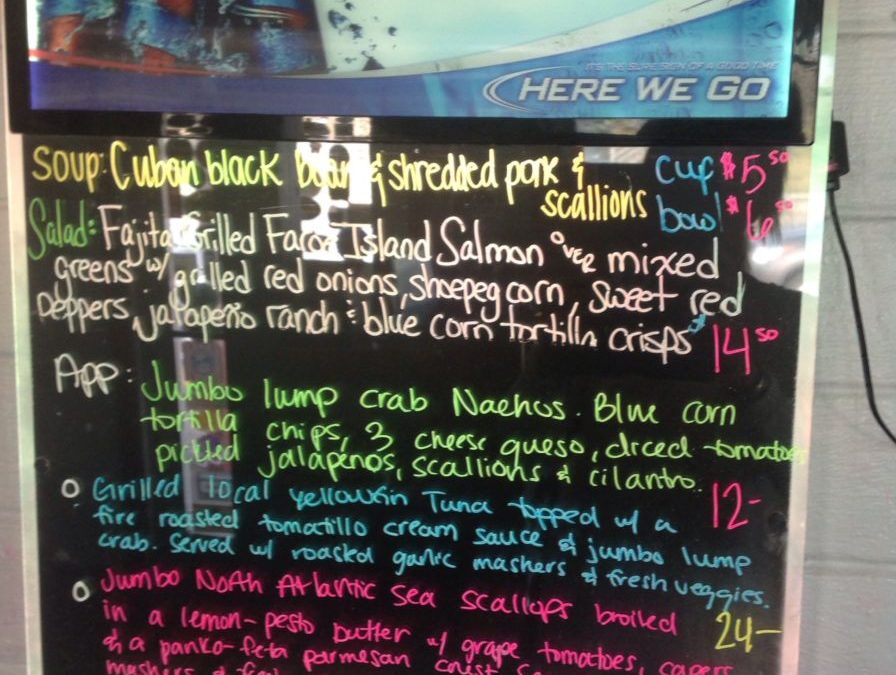 IT'S THE SURE SIGN OF A GOOD TIME
HERE WE GO
Soup: Cuban black Bean & shredded pork & cup $5 50
scallions bowl $6 50
Salad: Fajita Grilled Faroe Island Salmon over mixed
greens w/ grilled red onions, shoepeg corn, sweet red
peppers, jalapeño ranch & blue corn tortilla crisps 14 50
App: Jumbo lump crab Nachos. Blue corn
tortilla chips, 3 cheese queso, diced tomatoes
pickled jalapeños, scallions & cilantro. 12-
Grilled local yellowfin Tuna topped w/ a
fire roasted tomatillo cream sauce & jumbo lump
crab. Served w/ roasted garlic mashers & fresh veggies. 24-
Jumbo Noth Atlantic Sea Scallops broiled
in a lemon-pesto butter w/ grape tomatoes, capers
& a panko-feta parmesan crust
mashers &